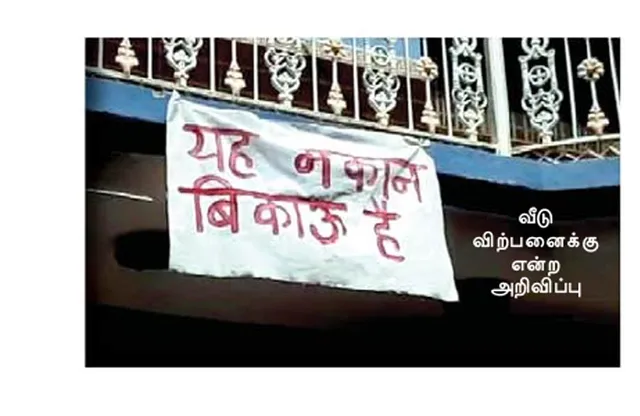 यह मकान
बिकाऊ है
வீடு
விற்பனைக்கு
என்ற
அறிவிப்பு